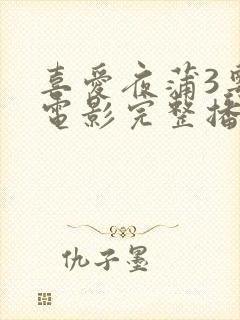 喜愛夜蒲3粵
電影完整播
仇子墨